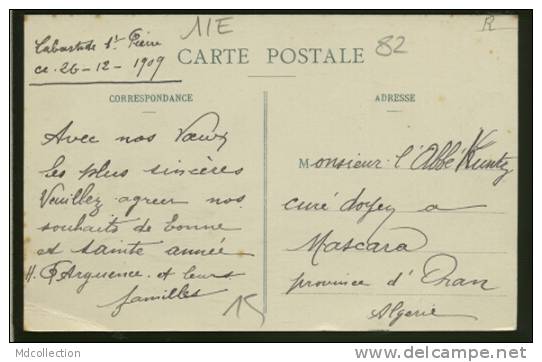 11E
R
Labastide St Pierre
ce 26-12-1909
CARTE POSTALE
82
CORRESPONDANCE
ADRESSE
Avec nos Vœux
les plus sincères
Veuillez agreer nos
souhaits de bonne
et sainte année
H. Arguence et leurs
familles
15
Monsieur l'Abbé Kuntz
curé doyen a
Mascara
province d'Oran
Algerie
Mdcollection
http://www.delcampe.net